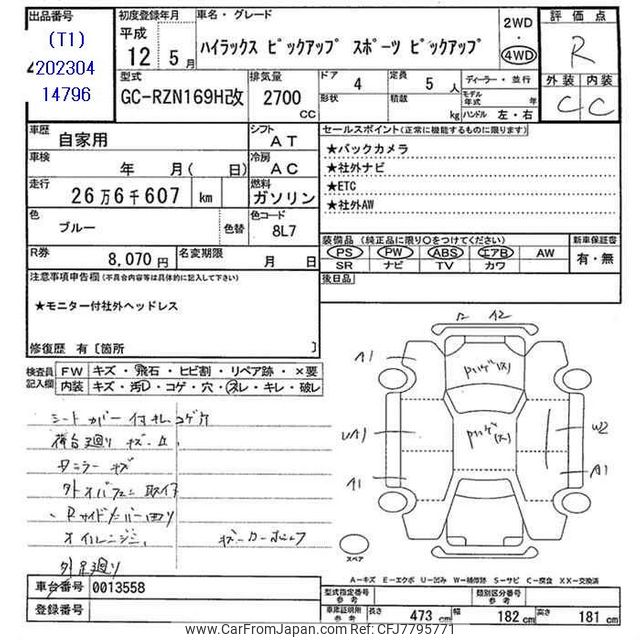 出品番号
(T1)
202304
14796
初度登録年月
平成
12年 5月
車名・グレード
ハイラックス ピックアップ スポーツ ピックアップ
2WD
・
4WD
評価点
R
外装 内装
C C
型式
GC-RZN169H改
排気量
2700
CC
ドア 4
形状
定員 5 人
積載 kg
ディーラー・並行
モデル年式 年
ハンドル 左・右
車歴 自家用
シフト AT
車検 年 月( 日)
冷房 AC
走行 26万6千607 km
燃料 ガソリン
色 ブルー
色替
色コード 8L7
R券 8,070円
名変期限 月 日
セールスポイント(正常に機能するものに限ります)
★バックカメラ
★社外ナビ
★ETC
★社外AW
装備品(純正品に限り○をつけてください)
PS PW ABS エアB AW
SR ナビ TV カワ
新車保証書
有・無
後日品
注意事項申告欄(不具合内容等は具体的に記入して下さい)
★モニター付社外ヘッドレス
修復歴 有〔箇所 〕
検査員
記入欄
FW キズ・飛石・ヒビ割・リペア跡・×要
内装 キズ・汚れ・コゲ・穴・スレ・キレ・破レ
A2
A1
A1
W2
A1
スペア
A-キズ E-エクボ U-凹み W-補修跡 S-サビ C-腐食 XX-交換済
車台番号 0013558
登録番号
型式指定番号
参考
類別区分番号
参考
車庫証明用
参考
長さ 473 cm 幅 182 cm 高さ 181 cm
www.CarFromJapan.com - CFJ7795771